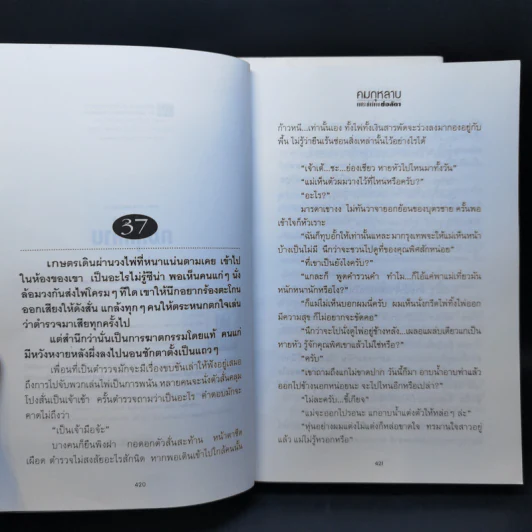 37
เกษตรเดินผ่านวงไพ่ที่หนาแน่นตามเคย เข้าไป
ในห้องของเขา เป็นอะไรไม่รู้ซีน่า พอเห็นคนแก่ๆ นั่ง
ล้อมวงก้นส่งไฟโครมๆ ทีใด เขาให้นึกอยากร้องตะโกน
ออกเสียงให้ดังลั่น แกล้งทุกๆ คนให้ตระหนกตกใจเล่น
ว่าตำรวจมาเสียทุกครั้งไป
แต่สำนึกว่านั่นเป็นการฆาตกรรมโดยแท้ คนแก่
มีหวังหงายหลังผึ่งลงไปนอนชักตาตั้งเป็นแถวๆ
เพื่อนที่เป็นตำรวจมักจะมีเรื่องขบขันเล่าให้ฟังอยู่เสมอ
ถึงการไปจับพวกเล่นไพ่เป็นการพนัน หลายคนจะนั่งตัวสั่นคลุม
โปงสั่นเป็นเจ้าเข้า ครั้นตำรวจถามว่าเป็นอะไร คำตอบมักจะ
คาดไม่ถึงว่า
"เป็นเจ้ามือจ้ะ"
บางคนก็ยืนพิงฝา กอดอกตัวสั่นสะท้าน หน้าตาซีด
เผือด ตำรวจไม่สงสัยอะไรสักนิด หากพอเดินเข้าไปใกล้คนนั้น
420
คมกุหลาบ
ก้าวหนี...เท่านั้นเอง ทั้งไพ่ทั้งเงินสารพัดจะร่วงลงมากองอยู่กับ
พื้น ไม่รู้ว่ายืนเร้นซ่อนสิ่งเหล่านั้นไว้อย่างไรได้
"เจ้าเต้...ชะ...ย่องเชียว หายหัวไปไหนมาทั้งวัน"
"แม่เห็นตัวผมวางไว้ที่ไหนหรือครับ?"
"อะไร?"
มารดาเขางง ไม่ทันวาจายอกย้อนของบุตรชาย ครั้นพอ
เข้าใจก็หัวเราะ
"ฉันก็ทุบอั้กให้เท่านั้นแหละ มากรุงเทพจะให้แม่เห็นหน้า
บ้างเป็นไม่มี นึกว่าจะชวนไปดูที่ของคุณพิศสักหน่อย"
"ที่เขาเป็นยังไงครับ?"
"แกละก็ พูดคำรวนคำ ทำไม...ก็ไอ้แค่พาแม่เที่ยวมัน
หนักหนานักหรือไง?"
"ก็แม่ไม่เห็นบอกผมนี่ครับ ผมเห็นนั่งกรีดไพ่ทั้งไพ่ออก
มีความสุข ก็ไม่อยากจะขัดคอ"
"นึกว่าจะไปนั่งดูไพ่อยู่ข้างหลัง...เผลอแผล็บเดียวแกเป็น
หายหัว รู้จักคุณพิศเขาแล้วไม่ใช่หรือ?"
"ครับ"
"เขาถามถึงแกไม่ขาดปาก วันนี้ก็มา อาบน้ำอาบท่าแล้ว
ออกไปข้างนอกหน่อยนะ จะไปไหนอีกหรือเปล่า?"
"ไม่ละครับ...ขี้เกียจ"
"แม่จะออกไปรอนะ แกอาบน้ำแต่งตัวให้หล่อๆ ล่ะ"
"หุ่นอย่างผมแต่งไม่แต่งก็หล่อขาดใจ ทรมานใจสาวอยู่
แล้ว แม่ไม่รู้หรอกหรือ"
421